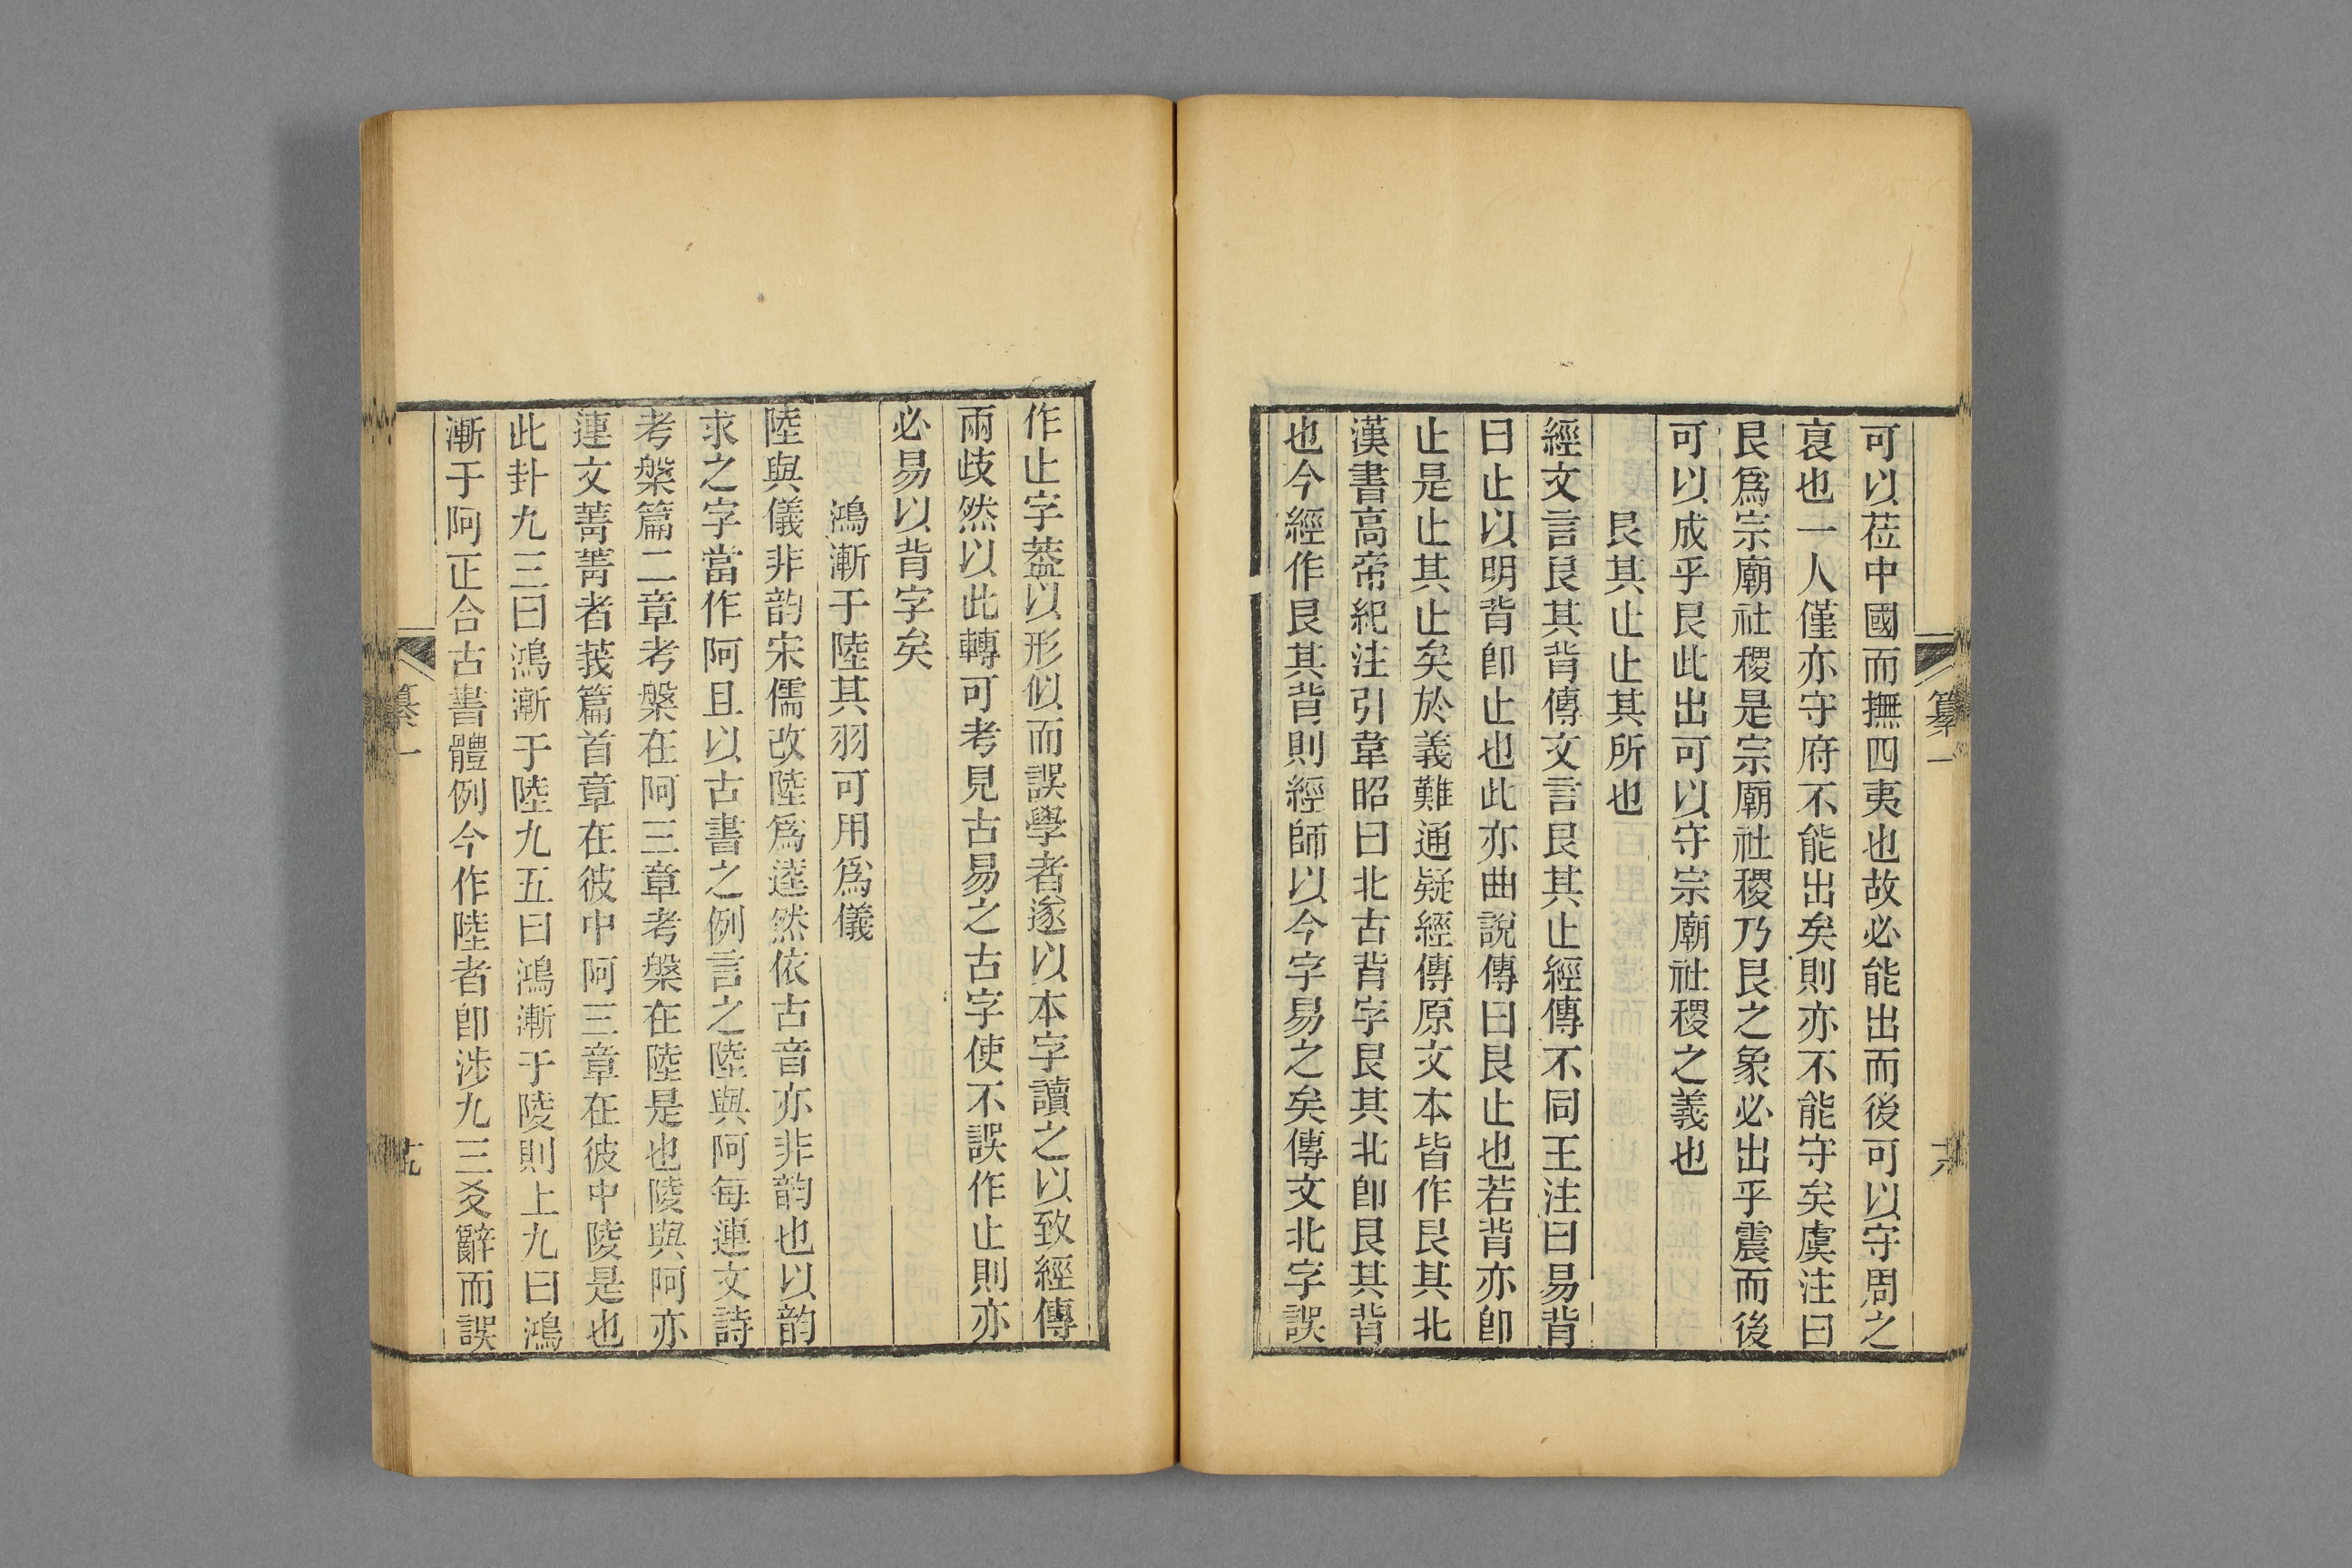 可以莅中國而撫四夷也故必能出而後可以守周之
哀也一人僅亦守府不能出矣則亦不能守矣虞注曰
艮爲宗廟社稷是宗廟社稷乃艮之象必出乎震而後
可以成乎艮此出可以守宗廟社稷之義也
艮其止止其所也
經文言艮其背傳文言艮其止經傳不同王注曰易背
曰止以明背卽止也此亦曲說傳曰艮止也若背亦卽
止是止其止矣於義難通疑經傳原文本皆作艮其北
漢書高帝紀注引韋昭曰北古背字艮其北卽艮其背
也今經作艮其背則經師以今字易之矣傳文北字誤
纂一
作止字葢以形似而誤學者遂以本字讀之以致經傳
兩歧然以此轉可考見古易之古字使不誤作止則亦
必易以背字矣
鴻漸于陸其羽可用爲儀
陸與儀非韵宋儒改陸爲逵然依古音亦非韵也以韵
求之字當作阿且以古書之例言之陸與阿每連文詩
考槃篇二章考槃在阿三章考槃在陸是也陵與阿亦
連文菁菁者莪篇首章在彼中阿三章在彼中陵是也
此卦九三曰鴻漸于陸九五曰鴻漸于陵則上九曰鴻
漸于阿正合古書體例今作陸者卽涉九三爻辭而誤
纂一